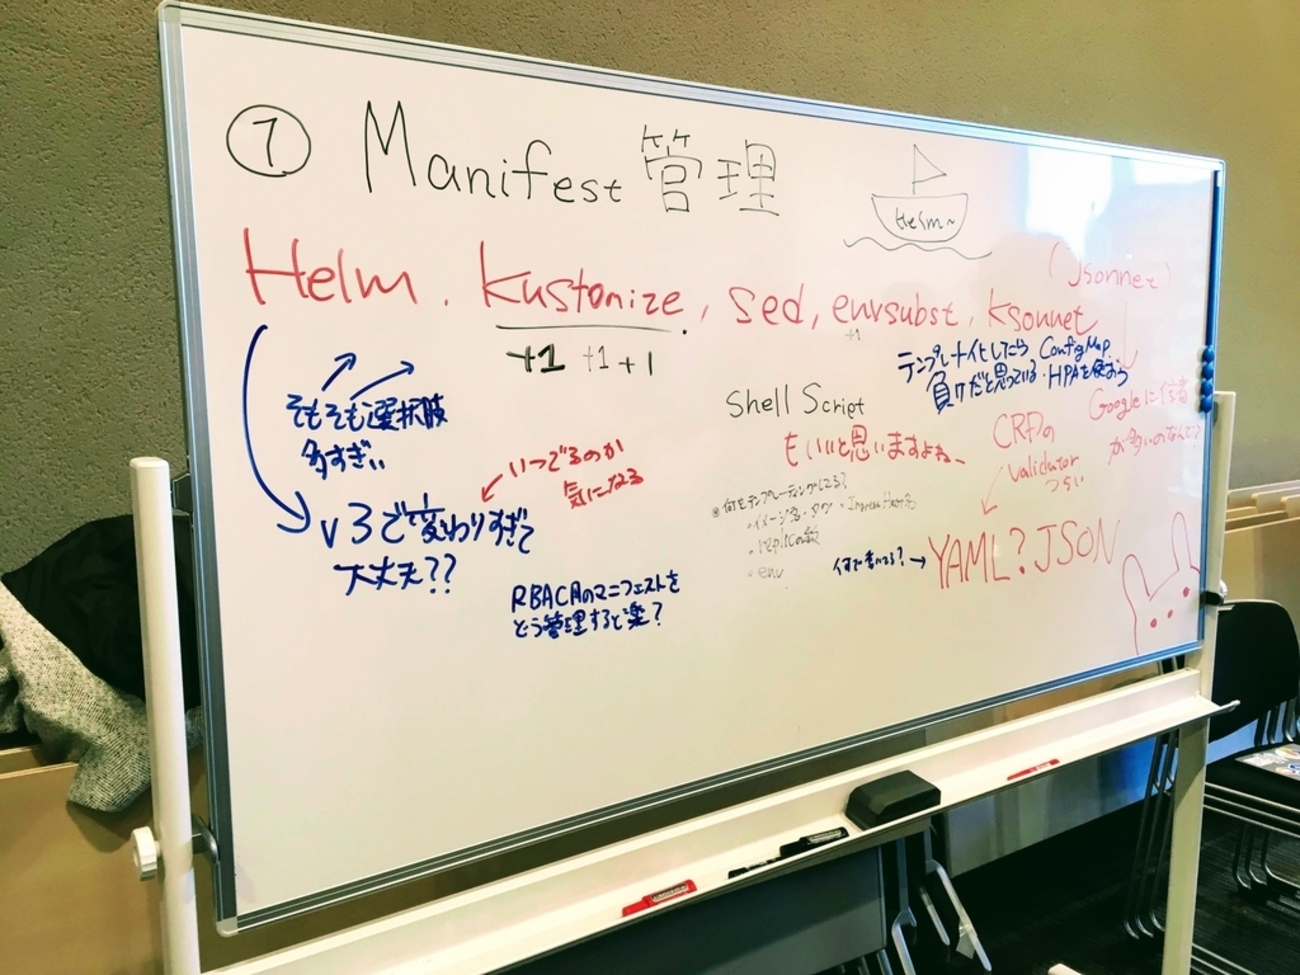 ⑦ Manifest 管理
Helm~
Helm. kustomize, sed, envsubst, ksonnet
(Jsonnet)
+1 +1 +1
+1
そもそも選択肢
多すぎぃ
いつでるのか
気になる
v3で変わりすぎて
大丈夫??
RBAC用のマニフェストを
どう管理すると楽?
Shell Script
もいいと思いますよねー
何をテンプレーティングしてる?
・イメージ名・タグ ・Ingress Host名
・replicaの数
・env
テンプレート化したら
負けだと思っている・
ConfigMap
HPAを使おう
Googleに信者
が多いのなんで?
CRDの
validator
つらい
何で書いてる? → YAML? JSON